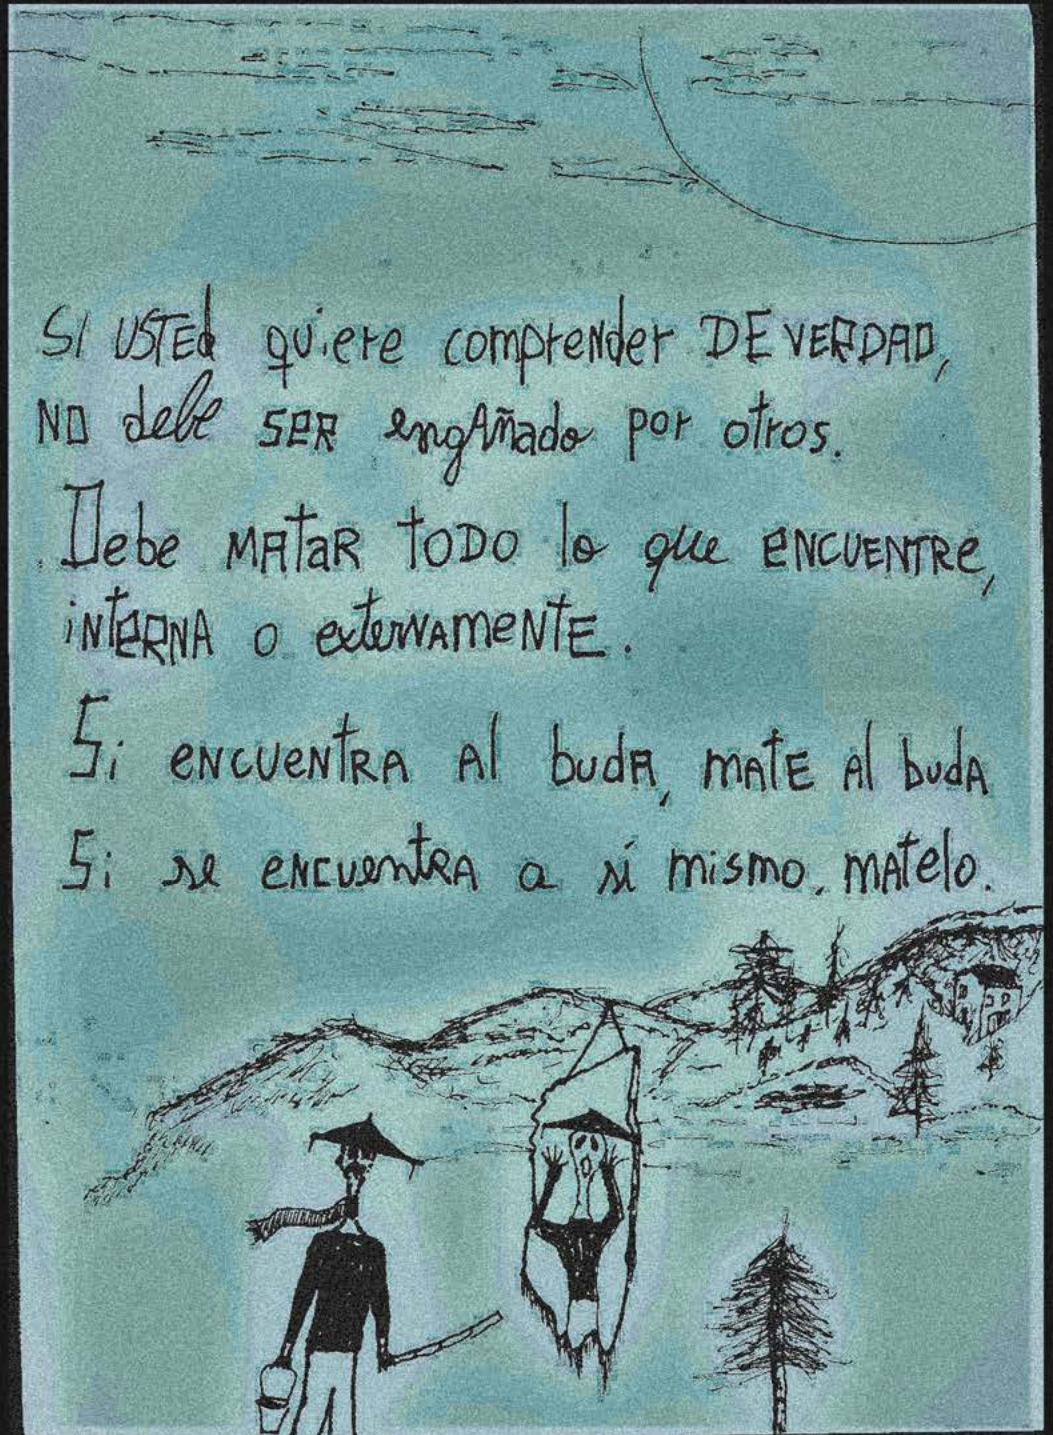 SI USTEd quiere comprender DE VERDAD,
NO debe SER engAñado por otros.
Debe MATaR TODO lo que ENCUENTRe,
iNTERNA o exterNAmeNTE.
Si ENCUENTRA Al budA, MATE Al budA
Si se ENCUENTRA a sí mismo, MATelo.